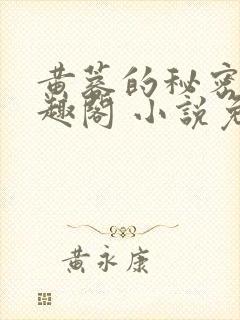 黄蓉的秘密
趣阁 小说免
黄永康